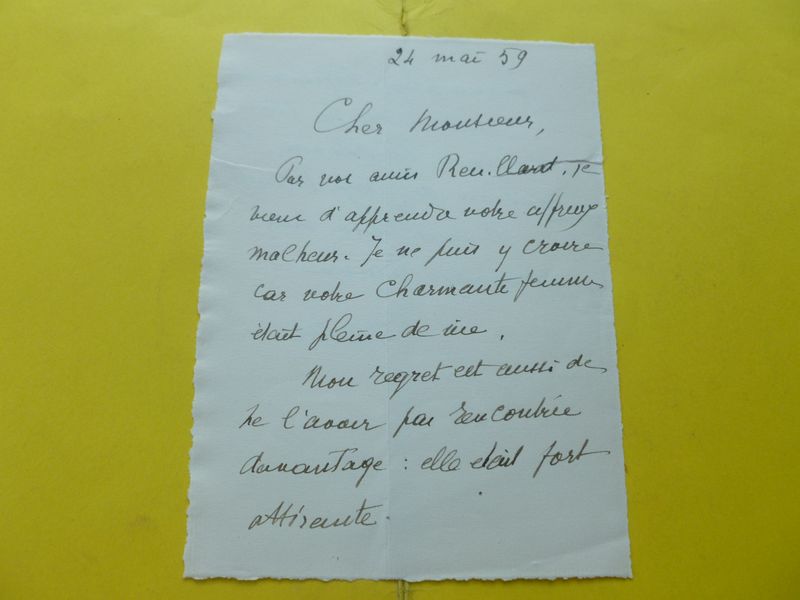 24 mai 59
Cher Monsieur,
Par nos amis Reuillard, je
viens d'apprendre votre affreux
malheur. Je ne puis y croire
car votre charmante femme
était pleine de vie.
Mon regret est aussi de
ne l'avoir pas rencontrée
davantage : elle était fort
attirante.